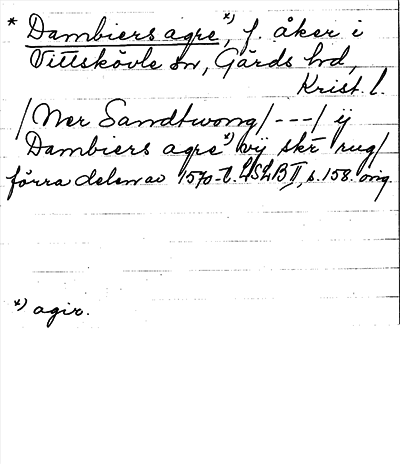 * Dambiers agre *), f. åker i
Vittskövle sn, Gärds hd,
Krist. l.
/Ner Sandtwong/ --- / ij
Dambiers agre *) vij skr rug/
förra delen av 1570-t. LSLB II, s. 158. orig.
*) agir.